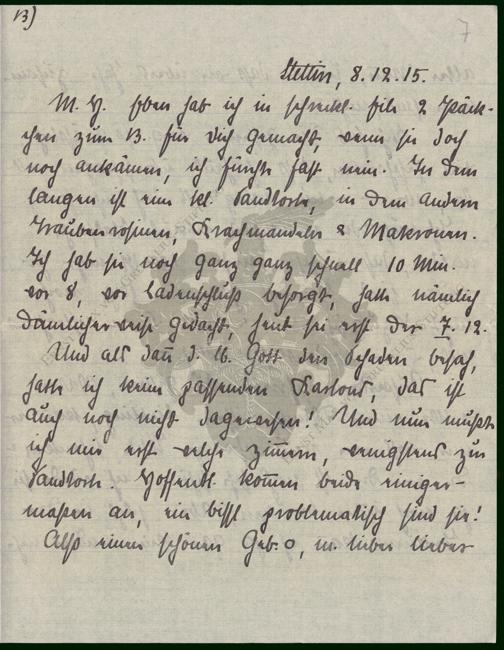 13)
7
Stettin, 8.12.15.
M. H. Eben hab ich in schreckl. Eile 2 Päck-
chen zum 13. für Dich gemacht, wenn sie doch
noch ankämen, ich fürchte fast nein. In dem
langen ist eine kl. Sandtorte, in dem andern
Traubenrosinen, Krachmandeln & Makronen.
Ich hab sie noch ganz ganz schnell 10 Min.
vor 8, vor Ladenschluß besorgt, hatte nämlich
dämlicherweise gedacht, heut sei erst der 7. 12.
Und als dann d. lb. Gott den Schaden besah,
hatte ich keine passenden Kartons, das ist
auch noch nicht dagewesen! Und nun mußte
ich mir erst welche zimmern, wenigstens zur
Sandtorte. Hoffentl. kommen beide einiger-
maßen an, ein bissl problematisch sind sie!
Also einen schönen Geb. , m. lieber lieber